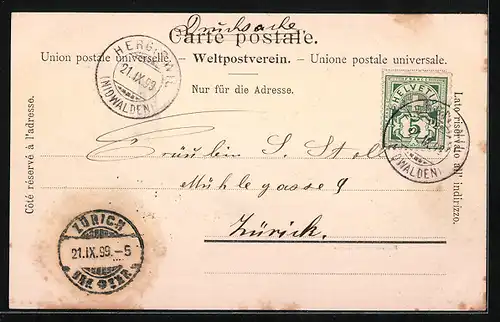 Drucksache
Carte postale.
Union postale universelle. – Weltpostverein. – Unione postale universale.
Nur für die Adresse.
Côté réservé à l'adresse.
Lato riservato all' indirizzo.
HERGISWIL
21.IX.99
(NIDWALDEN)
FRANCO
HELVETIA
5
(NIDWALDEN)
Fräulein S.
Mühlegasse 9
Zürich.
ZÜRICH
21.IX.99.–5